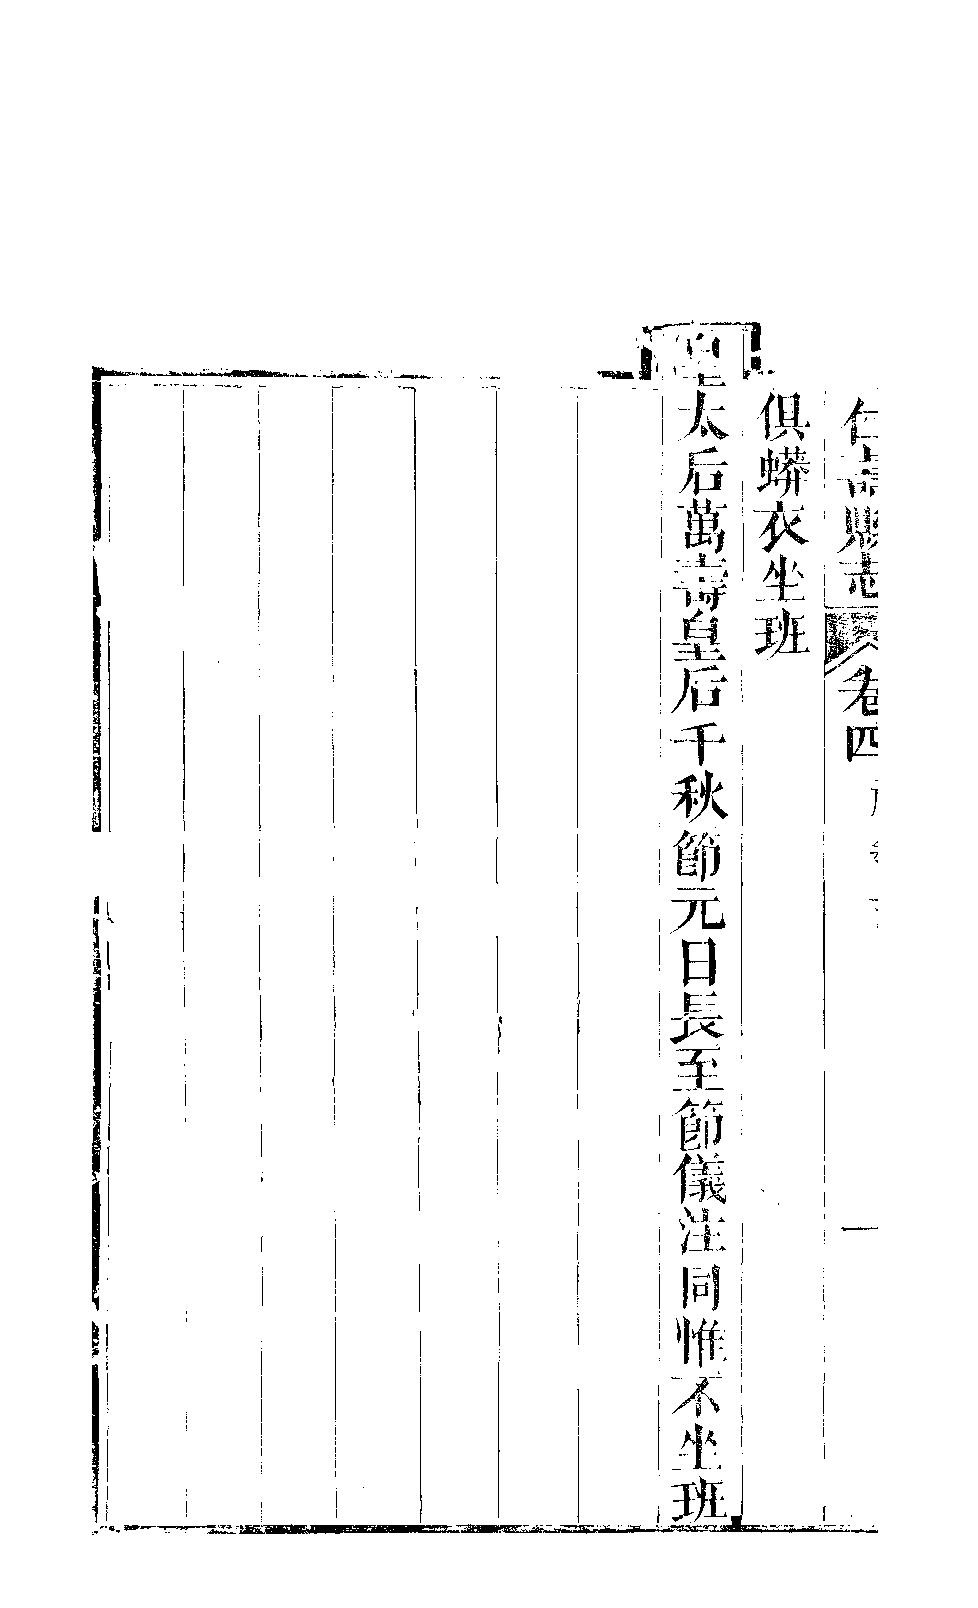 仁壽縣志 卷四 一
俱蟒衣坐班
皇太后萬壽皇后千秋節元日長至節儀注同惟不坐班